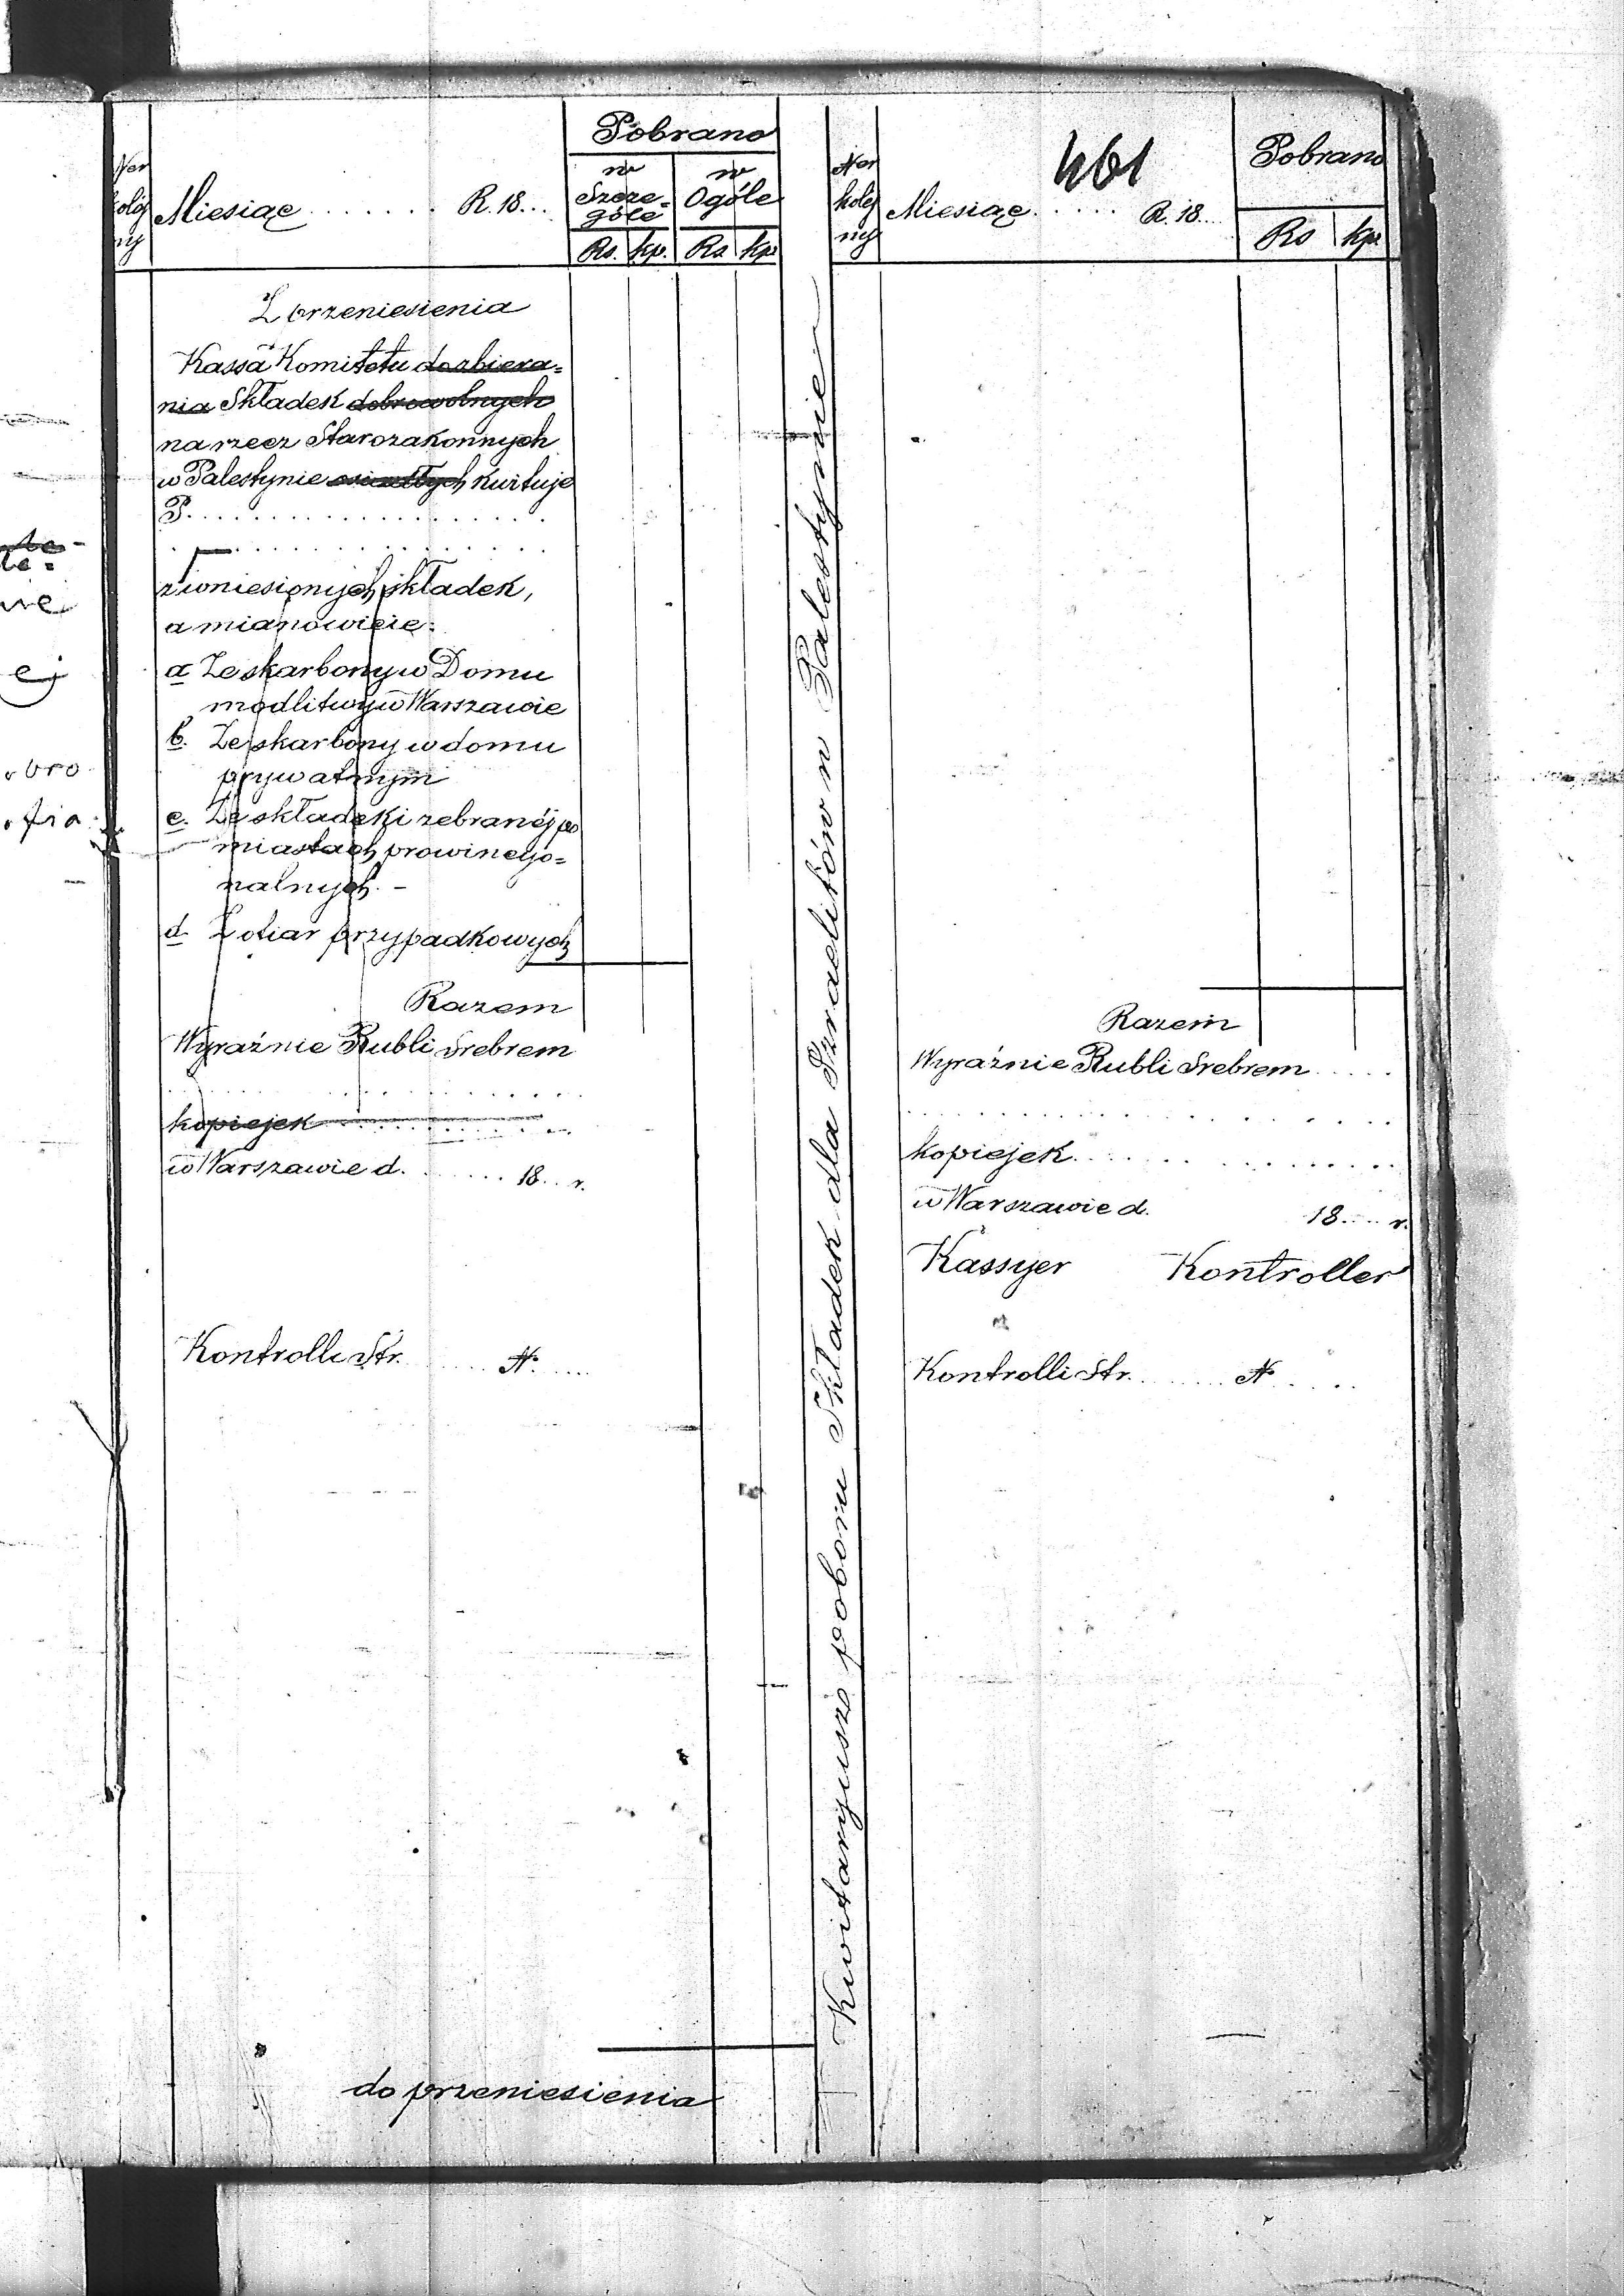 Ner
kolej
ny
Miesiąc . . . . . . . R. 18...
Pobrano
w
Szcze=
góle
w
Ogóle
Rs. kp. Rs kp.
Z przeniesienia
Kassa Komitetu do zbiera=
nia Składek dobrowolnych
na rzecz Starozakonnych
w Palestynie osiadłych kwituje
P. . . . . . . . . . . . . . . . . .
z wniesionych składek,
a mianowicie:
a Ze skarbony w Domu
modlitwy w Warszawie
b. Ze skarbony w domu
prywatnym
c. Ze składeki zebranéj po
miastach prowincyo=
nalnych. –
d. Z ofiar przypadkowych
Razem
Wyraźnie Rubli Srebrem
kopiejek . . . . . . . . .
w Warszawie d. . . . . . . 18... r.
Kontrolli Str. . . . . . N. . . . .
do przeniesienia
Kwitaryusz poboru Składek dla Izraelitów w Palestynie
461
Ner
kolej
ny
Miesiąc . . . . . R. 18...
Pobrano
Rs kp.
Razem
Wyraźnie Rubli Srebrem . . . . .
kopiejek . . . . . . . . . . . .
w Warszawie d. 18..... r.
Kassyer Kontroller
Kontrolli Str. . . . . . . N . . . .
ej